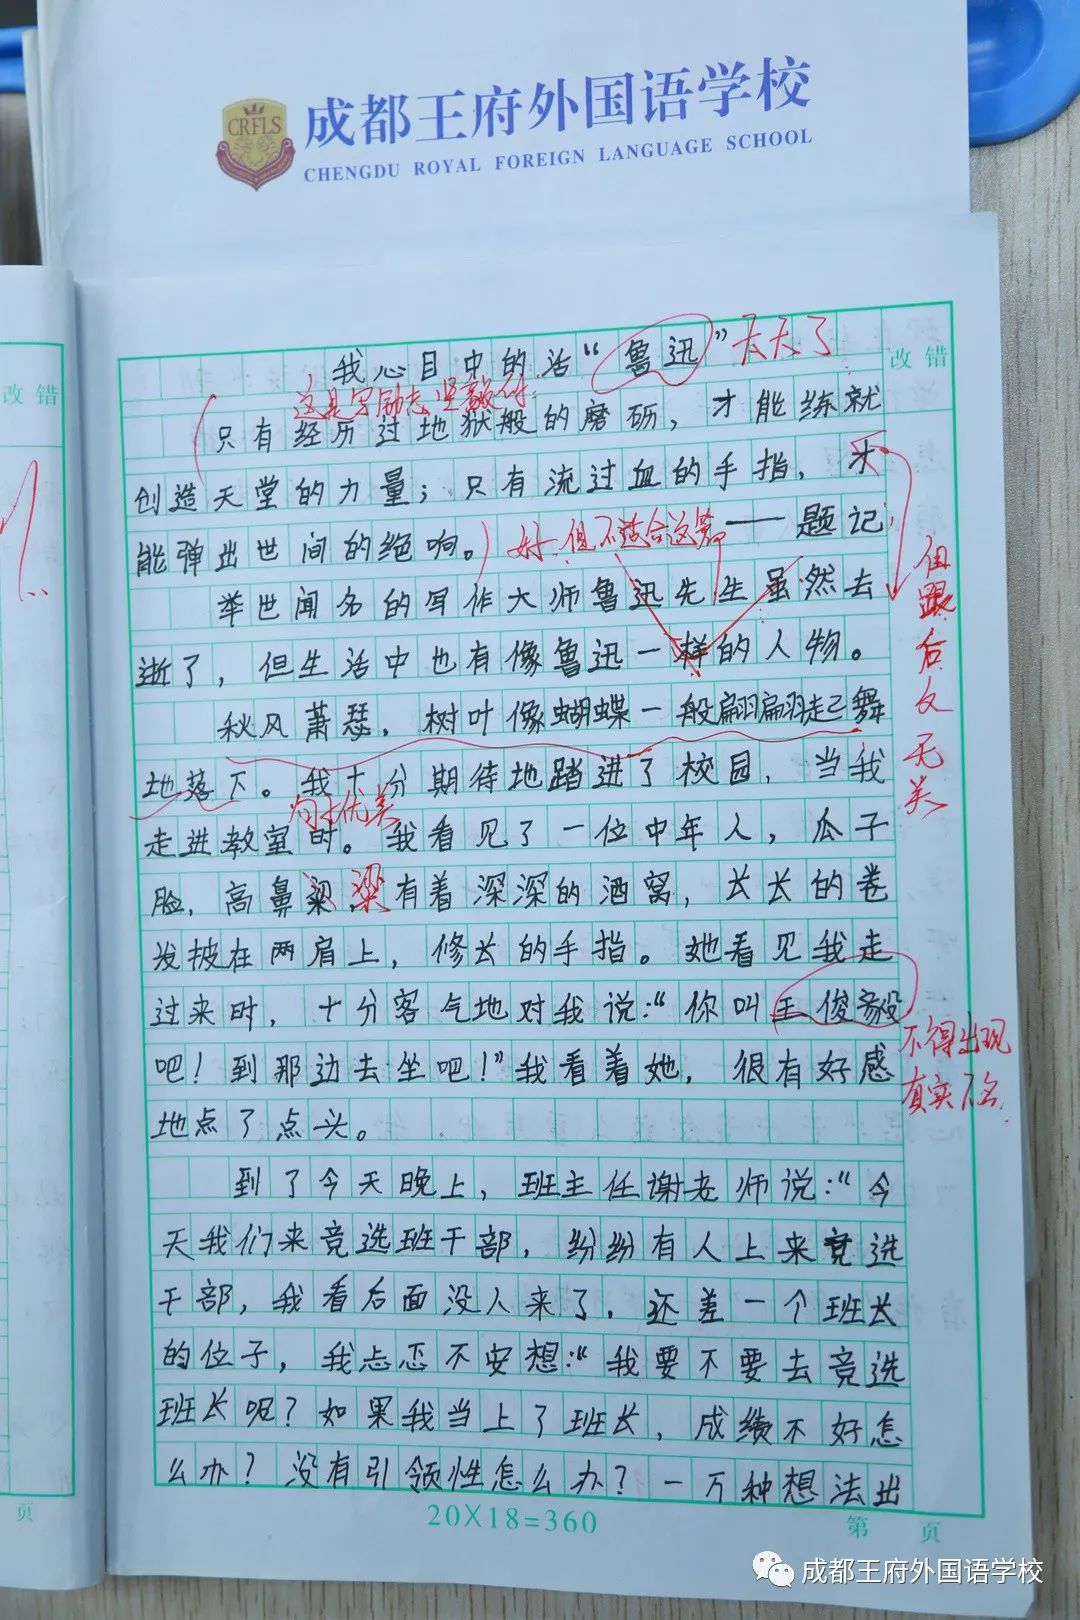 CRFLS
成都王府外国语学校
CHENGDU ROYAL FOREIGN LANGUAGE SCHOOL
我心目中的活“鲁迅”
太大了
改错
改错
这是写励志坚毅
只有经历过地狱般的磨砺，才能练就
创造天堂的力量；只有流过血的手指，才
能弹出世间的绝响。——题记
好，但不适合这篇
举世闻名的写作大师鲁迅先生虽然去
逝了，但生活中也有像鲁迅一样的人物。
但跟后文无关
秋风萧瑟，树叶像蝴蝶一般翩翩起舞
地落下。我十分期待地踏进了校园，当我
句子优美
走进教室时。我看见了一位中年人，瓜子
脸，高鼻梁，有着深深的酒窝，长长的卷
梁
发披在两肩上，修长的手指。她看见我走
过来时，十分客气地对我说：“你叫王俊毅
吧！到那边去坐吧！”我看着她，很有好感
不得出现
真实
地点了点头。
到了今天晚上，班主任谢老师说：“今
天我们来竞选班干部，纷纷有人上来竞选
干部，我看后面没人来了，还差一个班长
的位子，我忐忑不安想：“我要不要去竞选
班长呢？如果我当上了班长，成绩不好怎
么办？没有引领性怎么办？一万种想法出
20X18=360
第 页
页
成都王府外国语学校